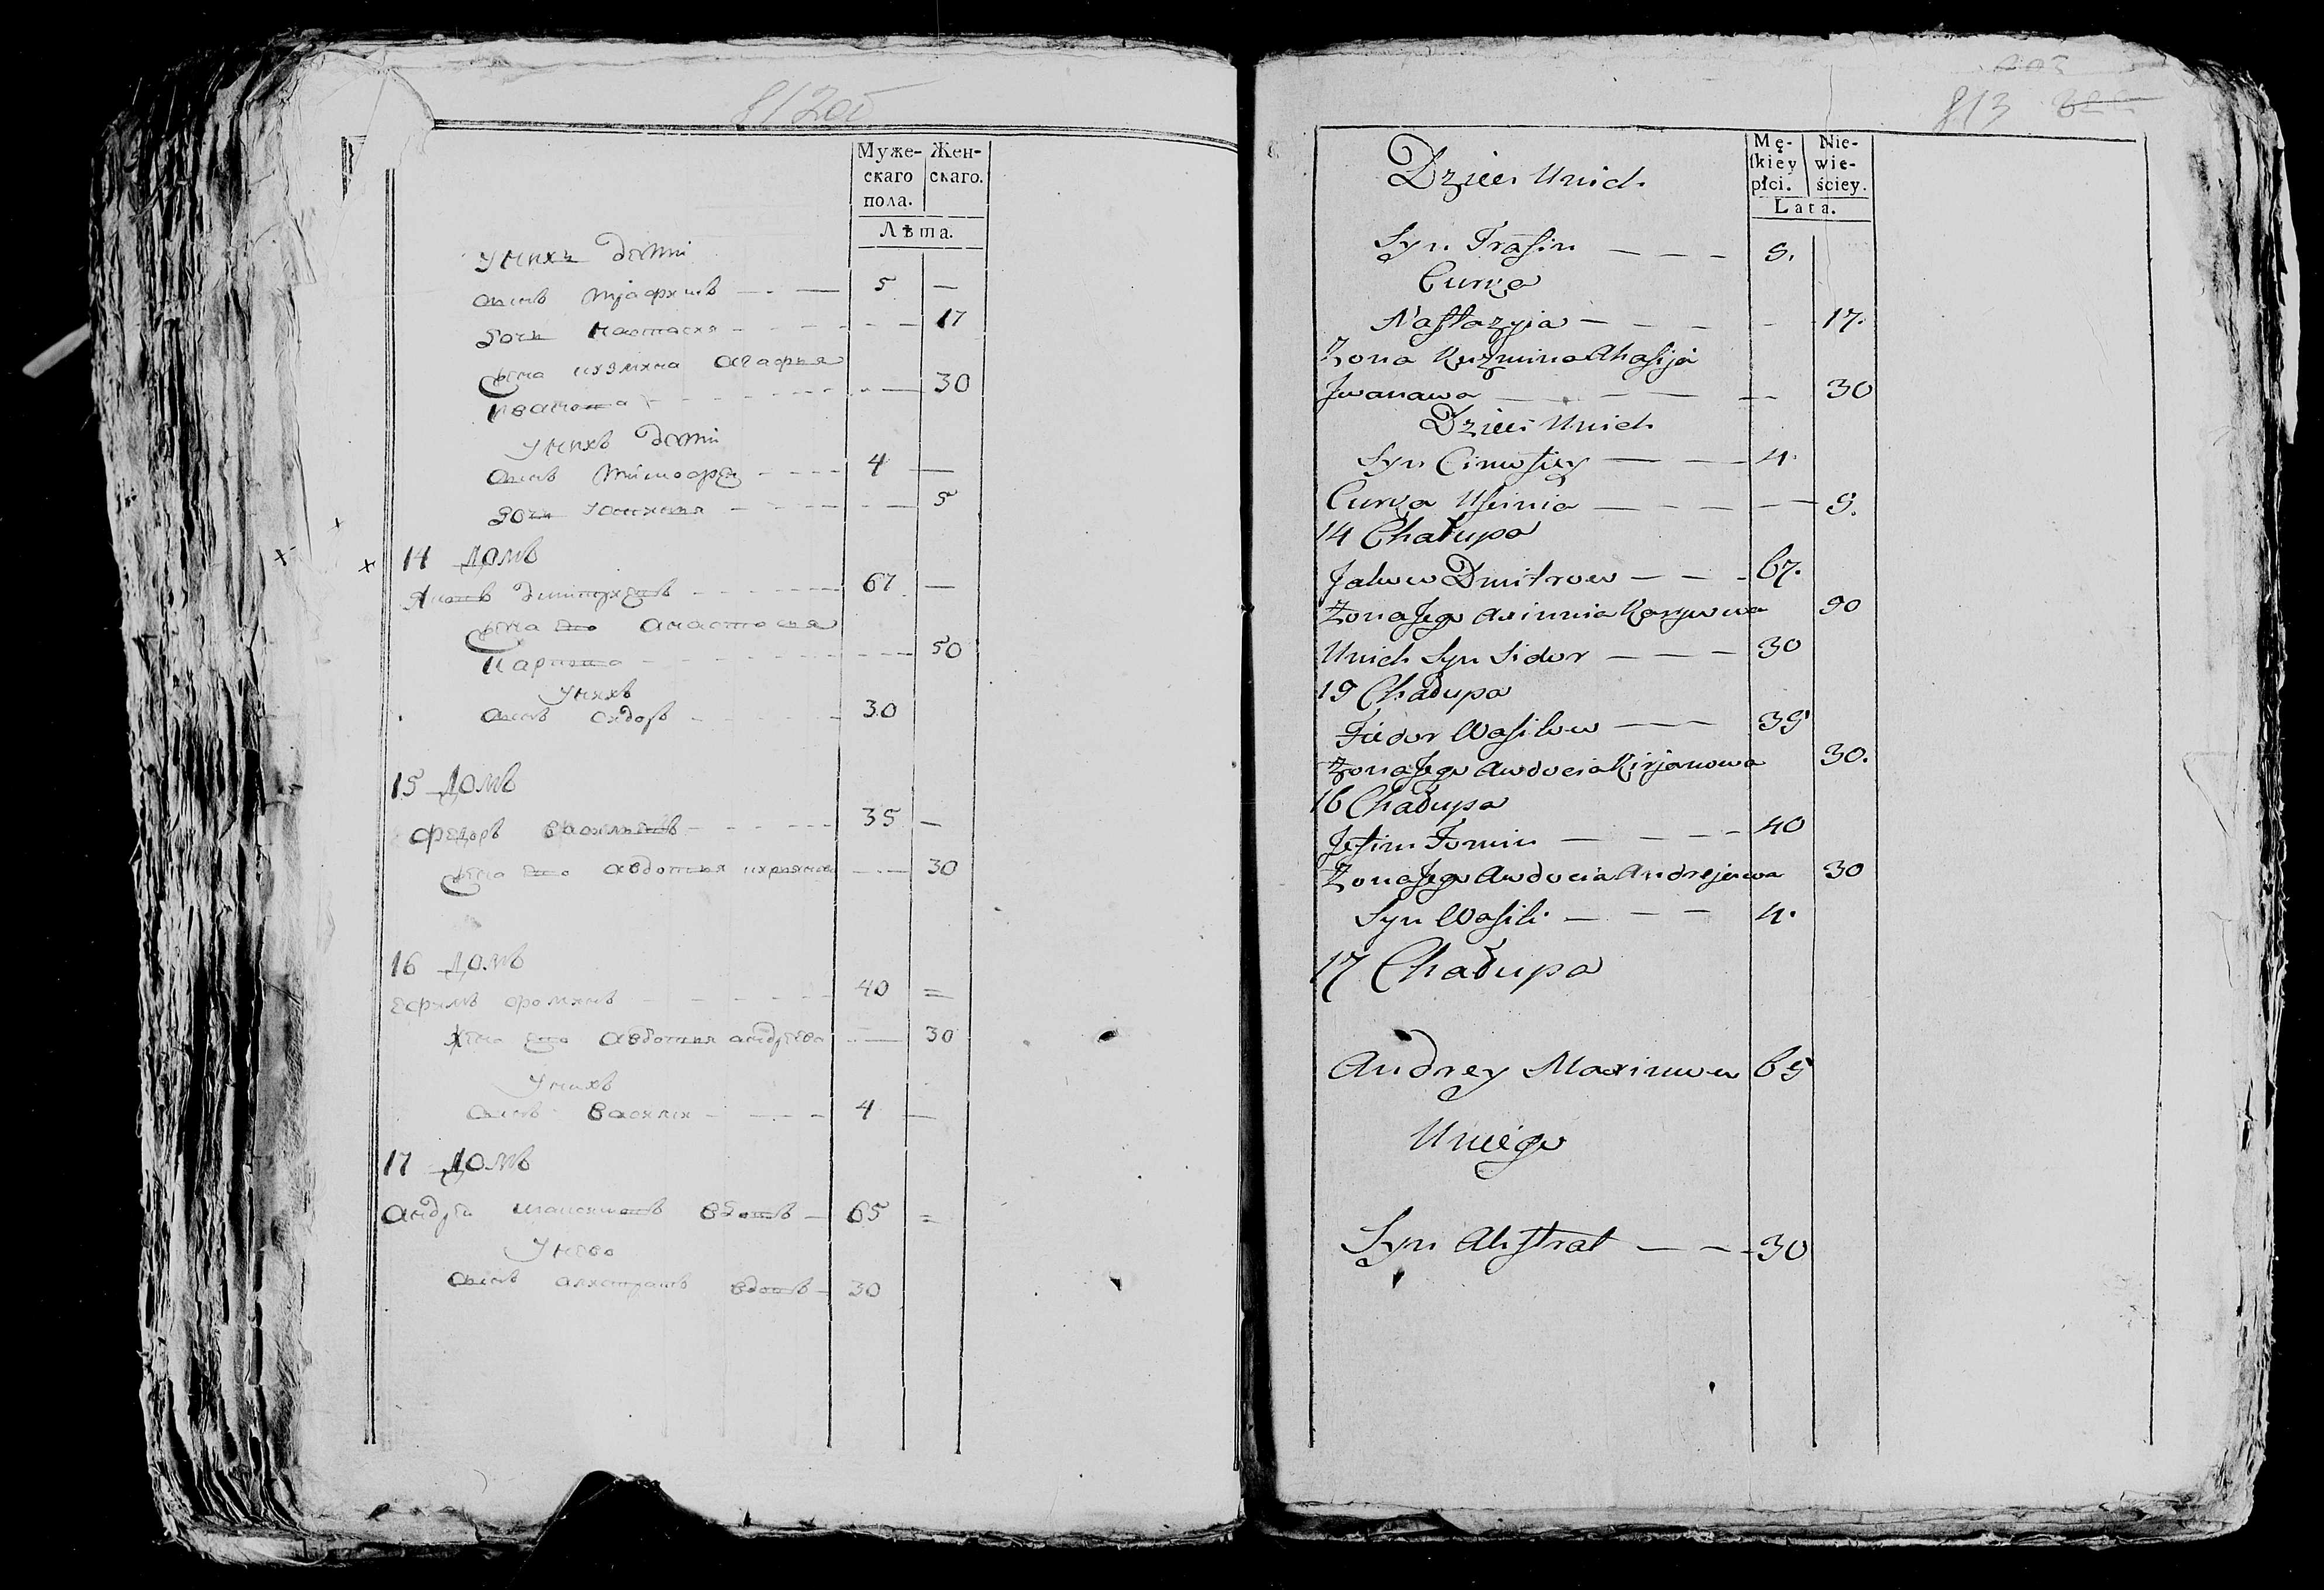 81 205
Муже-
скаго
пола.
Жен-
скаго.
Лѣта.
Унихъ дѣти
сынъ трафимъ — — 5 —
дочь настасия - - - - 17
жена кузмина агафья
иванова - - - - 30
Унихъ дѣти
сынъ тимофей - - - - 4 —
дочь - - - - 5
14 домъ
яковъ дмитриевъ - - - - 67 —
жена ево
карпова - - - - 50
Унихъ
сынъ сидоръ - - - - 30
15 домъ
федоръ васильевъ - - - - 35 —
жена ево авдотья кирянова — 30
16 домъ
ефимъ фоминъ - - - - 40 =
жена ево авдотья андреева — 30
Унихъ
сынъ василий - - - - 4 —
17 домъ
андрей максимовъ вдовъ — 65 =
Унево
сынъ алистратъ вдовъ — 30
813
Mę-
ſkiey
płci.
Nie-
wie-
ściey.
Lata.
Dzieci Unich
Syn Trafim — — — 5.
Curka
Naſtazyia — — — - 17.
Żona Kuzmina Ahafija
Jwanawa — — — 30
Dzieci Unich
Syn Cimofiey — — — 4.
Curka — — — — 5.
14 Chałupa
Jakow Dmitrow — — - 67.
Żona Jego 50
Unich Syn Sidor — — — 30
15 Chałupa
Fiedor Wasilow — — 35
Żona Jego Awdocia Kirjanowa 30.
16 Chałupa
Jefim Fomin — — — - 40
Żona Jego Awdocia Andrejewa 30
Syn Wasili — — — 4.
17 Chałupa
Andrey Maximow 65
Uniego
Syn Aliſtrat — — - 30